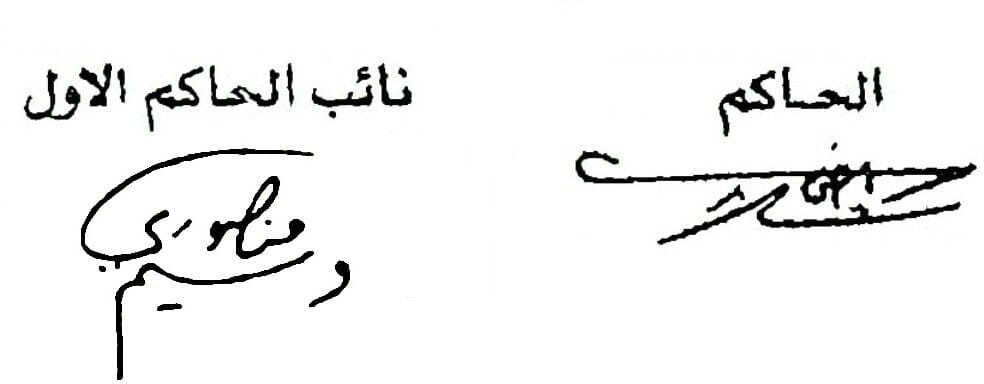 الحاكم
نائب الحاكم الاول
وسيم منصوري